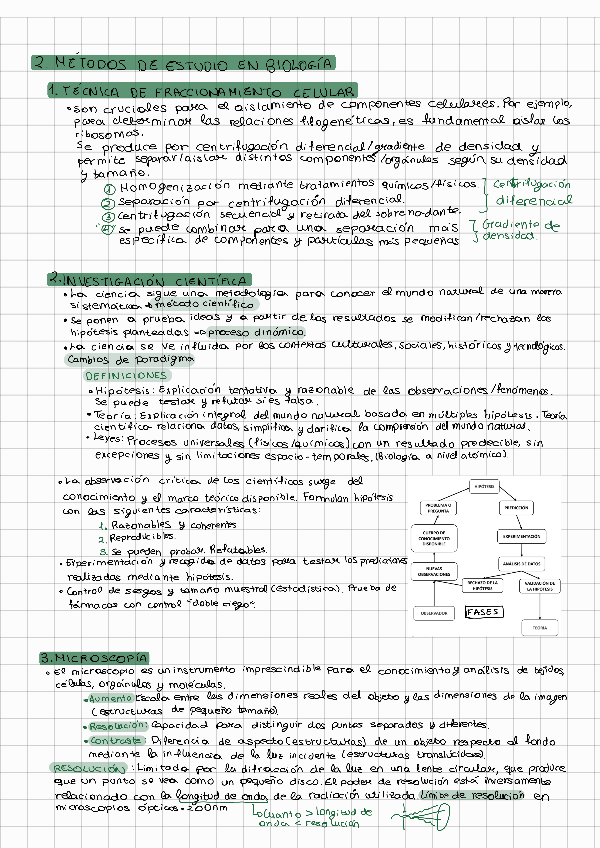 2. MÉTODOS DE ESTUDIO EN BIOLOGÍA
1. TÉCNICA DE FRACCIONAMIENTO CELULAR
• son cruciales para el aislamiento de componentes celulares. Por ejemplo,
para determinar las relaciones filogenéticas, es fundamental aislar los
ribosomas.
Se produce por centrifugación diferencial/gradiente de densidad y
permite separar/aislar distintos componentes/orgánulos según su densidad
y tamaño.
① Homogenización mediante tratamientos químicos/físicos
② Separación por centrifugación diferencial.
③ Centrifugación secuencial y retirada del sobrenadante.
Centrifugación
diferencial
④ Se puede combinar para una separación más
específica de componentes y partículas más pequeñas
Gradiente de
densidad.
2. INVESTIGACIÓN CIENTÍFICA
• La ciencia sigue una metodología para conocer el mundo natural de una manera
sistemática → método científico
• Se ponen a prueba ideas y a partir de los resultados se modifican/rechazan las
hipótesis planteadas → proceso dinámico.
• La ciencia se ve influida por los contextos culturales, sociales, históricos y tecnológicos.
Cambios de paradigma
DEFINICIONES
• Hipótesis: Explicación tentativa y razonable de las observaciones/fenómenos.
Se puede testar y refutar si es falsa.
• Teoría: Explicación integral del mundo natural basada en múltiples hipótesis. Teoría
científica relaciona datos, simplifica y clarifica la comprensión del mundo natural.
• Leyes: Procesos universales (físicos/químicos) con un resultado predecible, sin
excepciones y sin limitaciones espacio-temporales. (Biología a nivel atómico)
• La observación crítica de los científicos surge del
conocimiento y el marco teórico disponible. Formulan hipótesis
con las siguientes características:
1. Razonables y coherentes
2. Reproducibles.
3. Se pueden probar. Refutables.
• Experimentación y recogida de datos para testar las predicciones
realizadas mediante hipótesis.
• Control de sesgos y tamaño muestral (estadística). Prueba de
fármacos con control "doble ciego".
HIPÓTESIS
PROBLEMA O
PREGUNTA
PREDICCIÓN
CUERPO DE
CONOCIMIENTO
DISPONIBLE
EXPERIMENTACIÓN
ANÁLISIS DE DATOS
NUEVAS
OBSERVACIONES
RECHAZO DE LA
HIPÓTESIS
VALIDACIÓN DE
LA HIPÓTESIS
OBSERVADOR
FASES
TEORÍA
3. MICROSCOPÍA
• El microscopio es un instrumento imprescindible para el conocimiento y análisis de tejidos,
células, orgánulos y moléculas.
• Aumento: Escala entre las dimensiones reales del objeto y las dimensiones de la imagen
(estructuras de pequeño tamaño).
• Resolución: Capacidad para distinguir dos puntos separados y diferentes.
• Contraste: Diferencia de aspecto (estructuras) de un objeto respecto al fondo
mediante la influencia de la luz incidente (estructuras translúcidas).
RESOLUCIÓN: Limitada por la difracción de la luz en una lente circular, que produce
que un punto se vea como un pequeño disco. El poder de resolución está inversamente
relacionado con la longitud de onda de la radiación utilizada. Límite de resolución en
microscopios ópticos = 200nm
↳ Cuanto > longitud de
onda < resolución